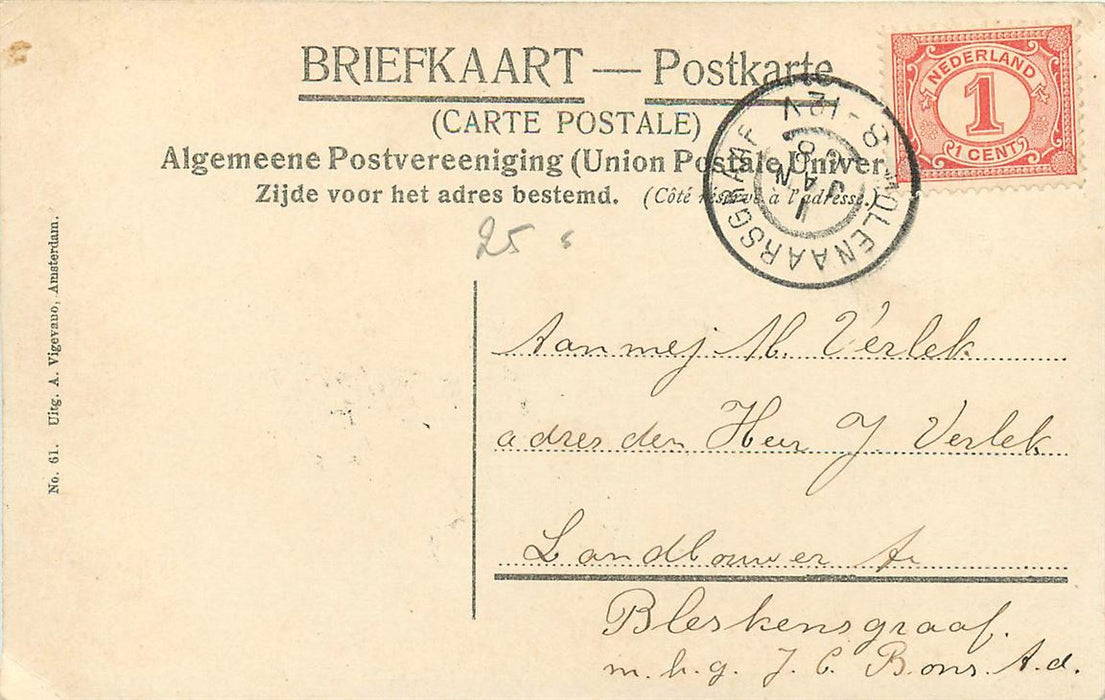 BRIEFKAART — Postkarte
(CARTE POSTALE)
Algemeene Postvereeniging (Union Postale Univer
Zijde voor het adres bestemd. (Côté réservé à l'adresse.)
NEDERLAND
1
1 CENT
MOLENAARSGRAAF
8-12V
1 JAN
25
No. 61. Uitg. A. Vigevano, Amsterdam.
Aan mej M. Verlek
adres den Heer J. Verlek
Landbouwer
Bleskensgraaf.
m.h.g. J. C. Bons A.d.